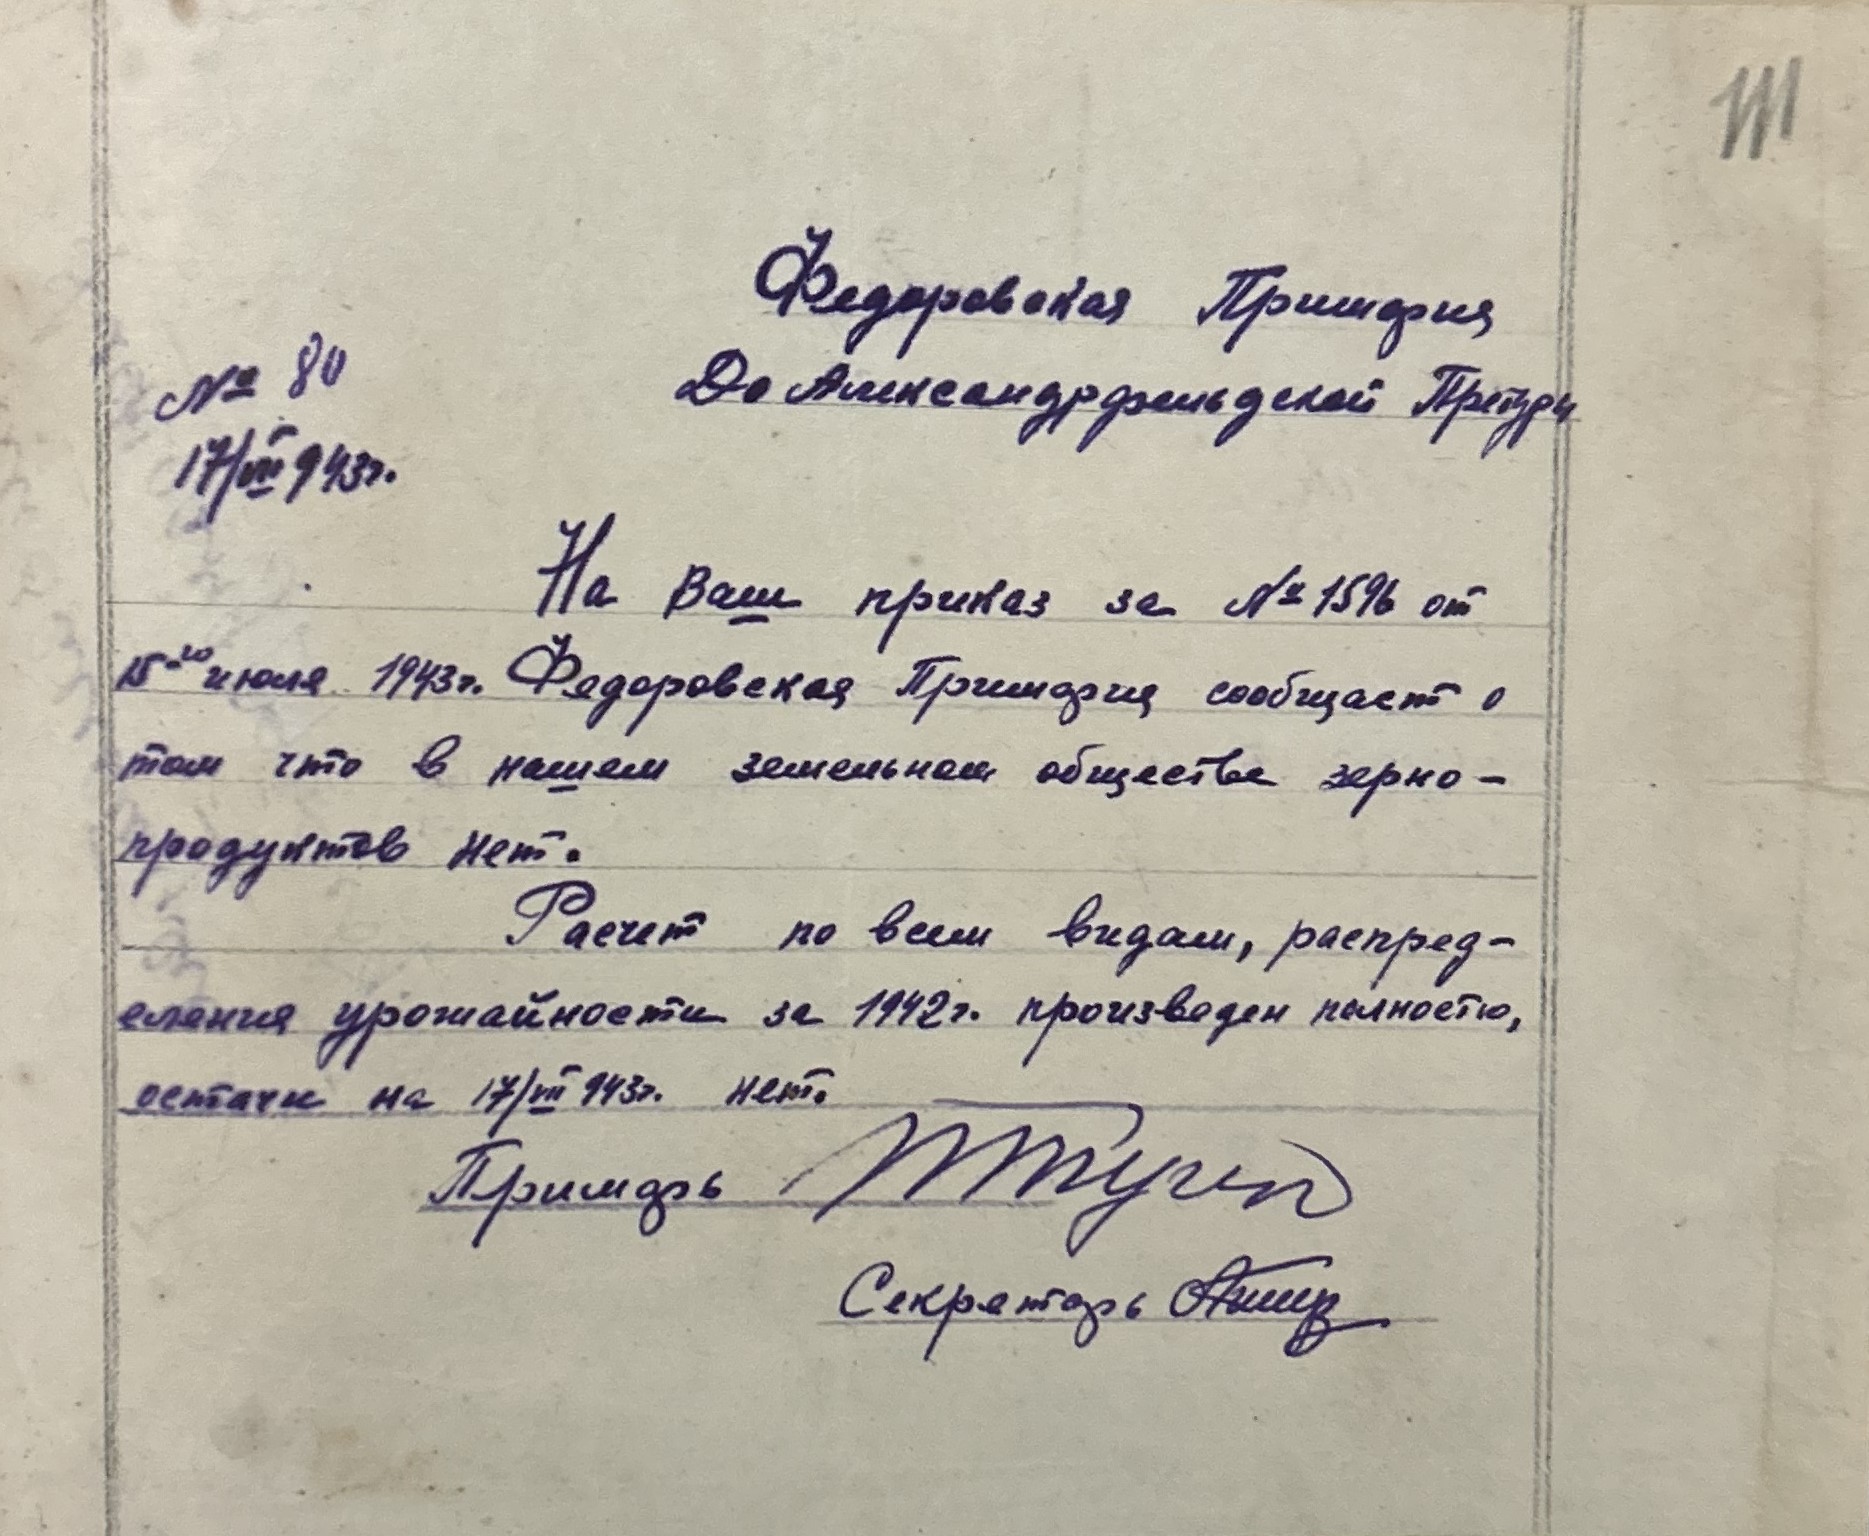 111
Федоровская Примария
До Александрфельдской Претуры
№ 80
17/VII 943г.
На Ваш приказ за № 1596 от
15-го июля 1943г. Федоровская Примария сообщает о
том что в нашем земельном обществе зерно-
продуктов нет.
Расчет по всем видам, распред-
еления урожайности за 1942г. произведен полностю,
остатки на 17/VII 943г. нет.
Примарь
Секретарь